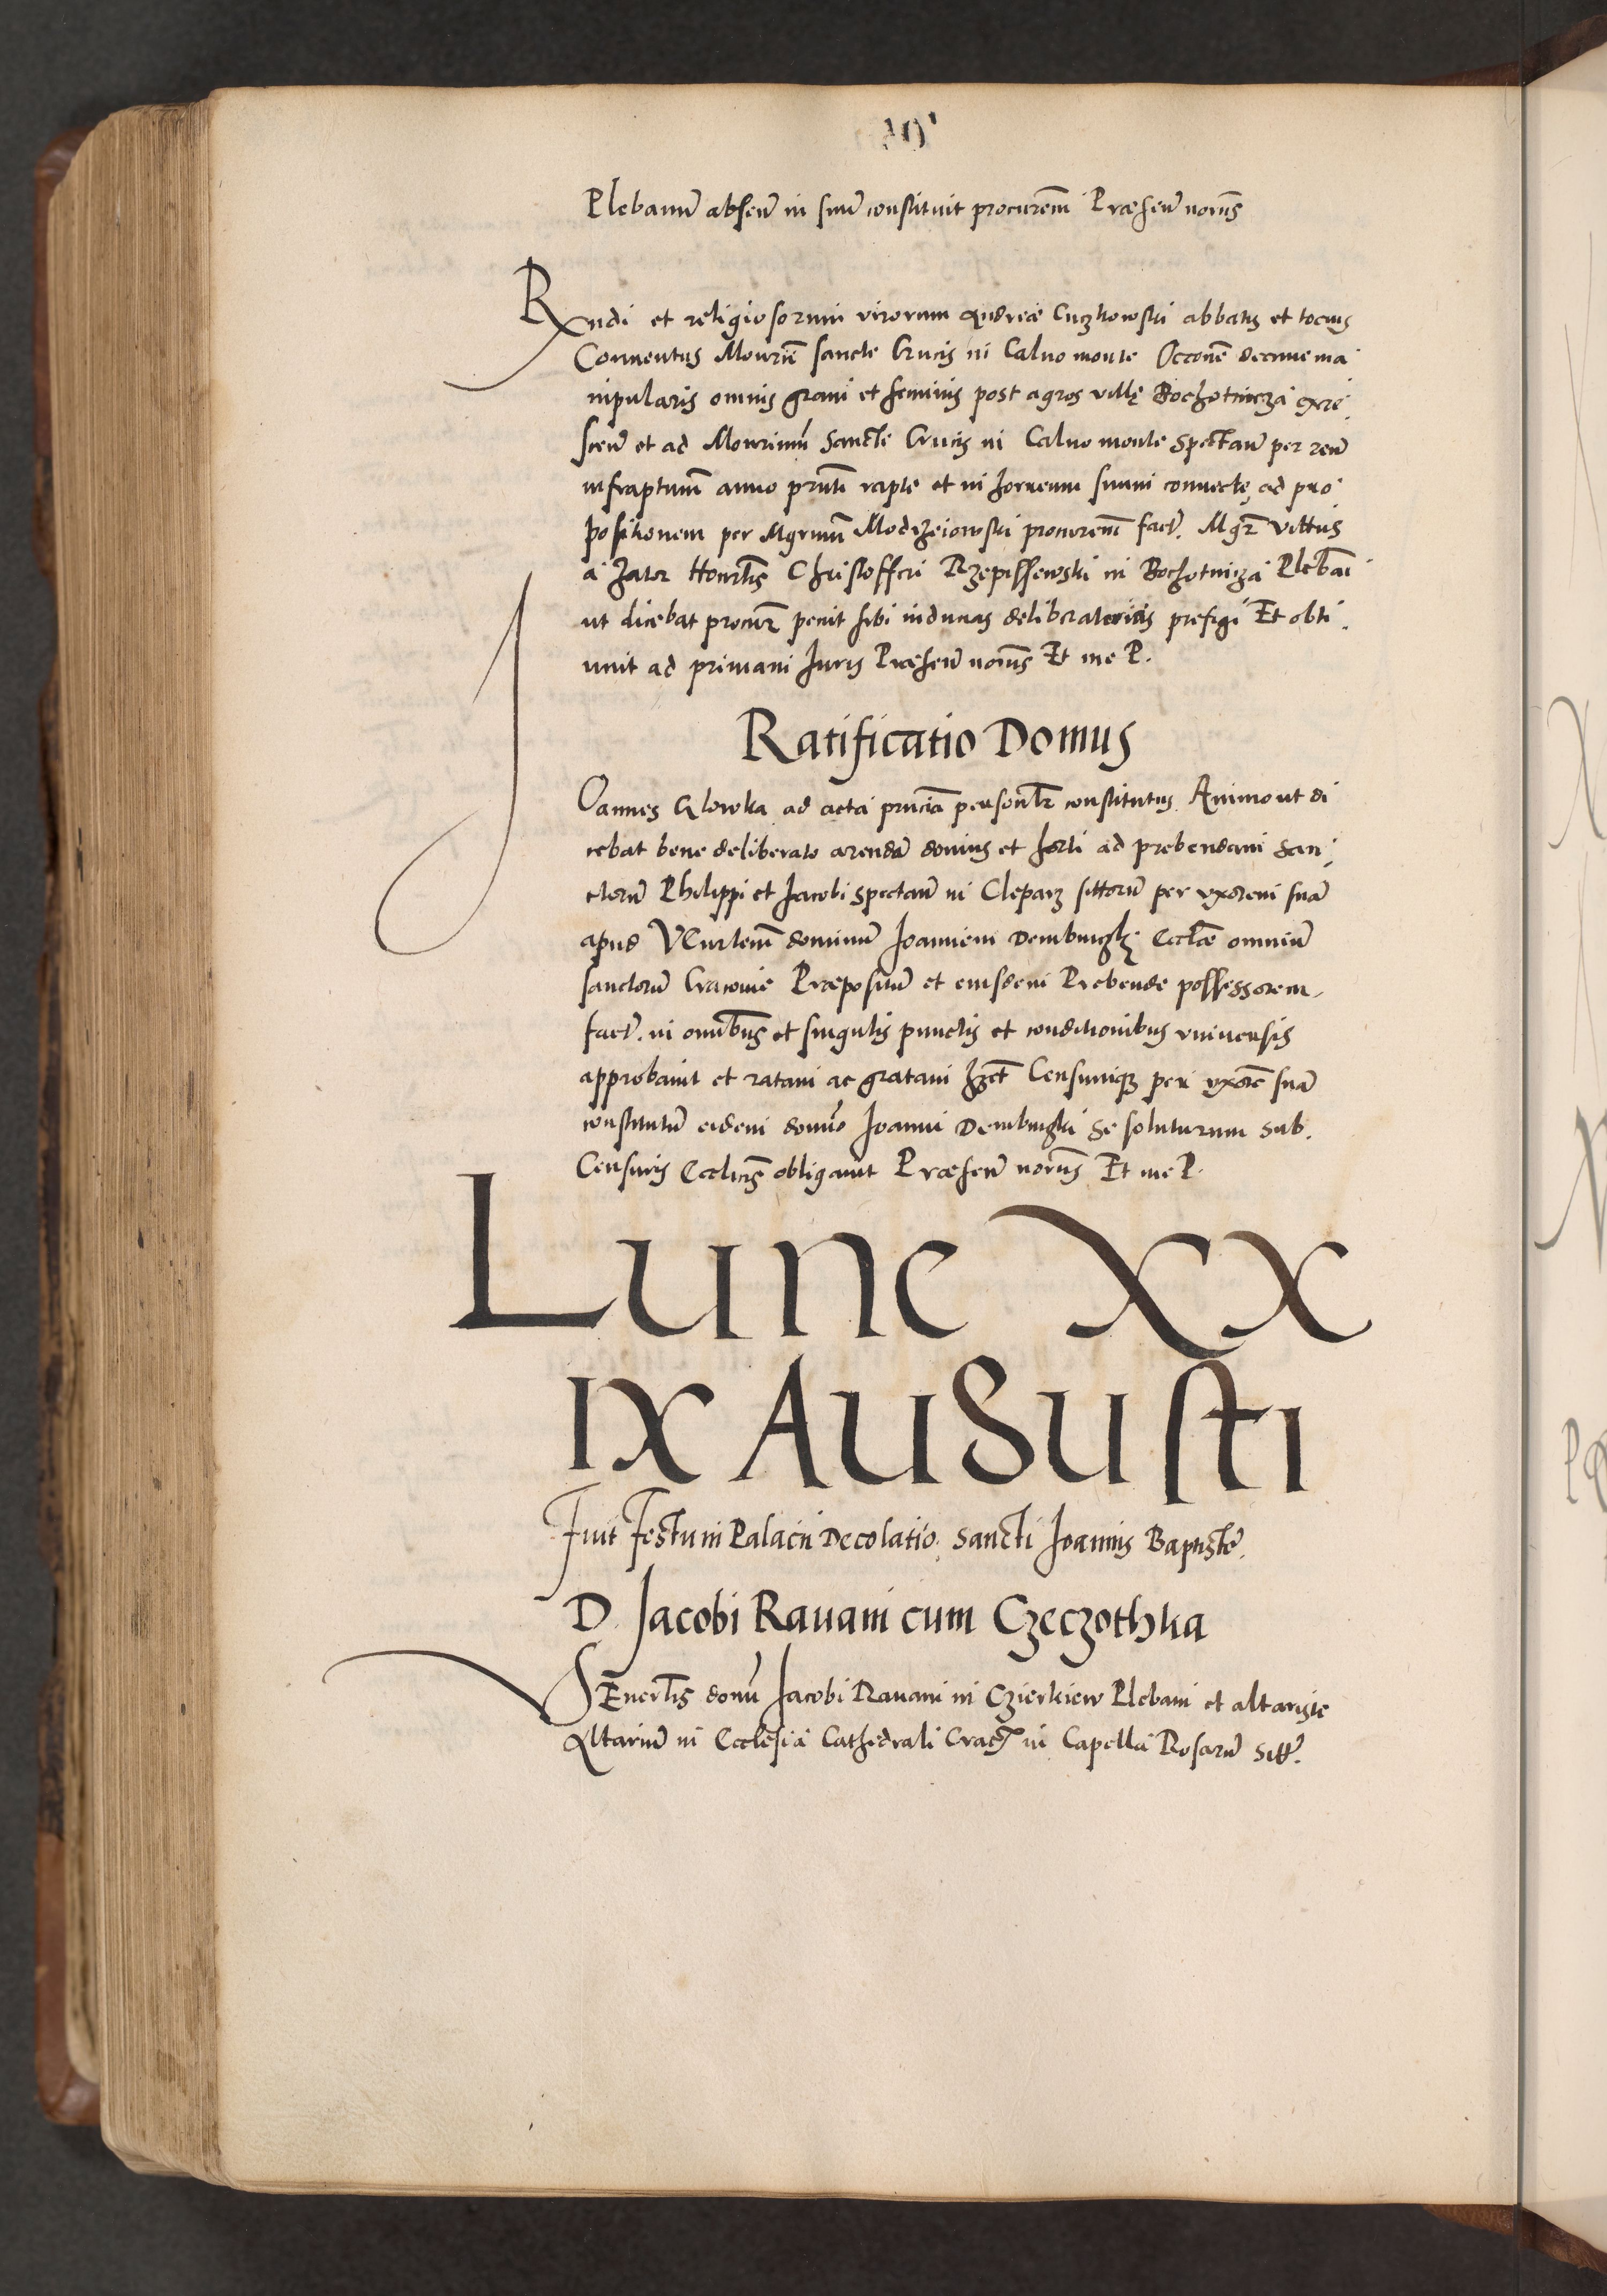 Plebanū absen̄ in suū constituit procurem̄ Præsen̄ nor̄us
Rndi et religiosorum virorum Andreæ Cuczkowski abbatis et tocius
Conuentus Mon̄rii Sancte Crucis in Caluo monte Occōne decime ma
nipularis omnis grani et seminis post agros villę Bochotnicza excre
scen̄ et ad Monrium Sancte Crucis in Caluo monte spectan̄ per reū
infraptum̄ anno prn̄ti rapte et in horreum suum conuectę ad pro
positionem per Mgrum̄ Modrzeiowski procurem̄ fact̄. Mgr̄ Vittus
a Zator Honrl̄is Christofferi Rzepissewski in Bochotnicza Plebā
ut dicebat procur̄ petiit sibi inducias deliberatorias prefigi Et obti
nuit ad primam Juris Præsen̄ nor̄us Et me P.
Ratificatio Domus
JOannes Glowka ad acta prn̄cia personl̄r constitutus Animo ut di
cebat bene deliberato arendā domus et horti ad prebendam San
ctorū Philippi et Jacobi spectan̄ in Cleparz sittorū per vxorem suā
apud VCurlem̄ dominū Joannem Dembinsky Eccl̄æ omniū
sanctorū Cracouie Præpositū et eiusdem Prebende possessorem
fact̄. in omnibus et singulis punctis et conditionibus vniuersis
approbauit et ratam ac gratam hz̄et Censumq̨ per vxorē suā
constitutū eidem domn̄o Joanni Dembinski se soluturum sub
Censuris Ecclicis̄ obligauit Præsen̄ nor̄us Et me P.
Lune XX
IX AUGUSti
Fuit Festum Palacii Decolatio Sancti Joannis Baptiste.
D. Jacobi Rauani cum Czeczothka
VEnerl̄is domn̄ Jacobi Rauani in Czierkiew Plebani et altariste
Altariū in Ecclesia Cathedrali Crac̄ in Capella Rosarū sitt̄.